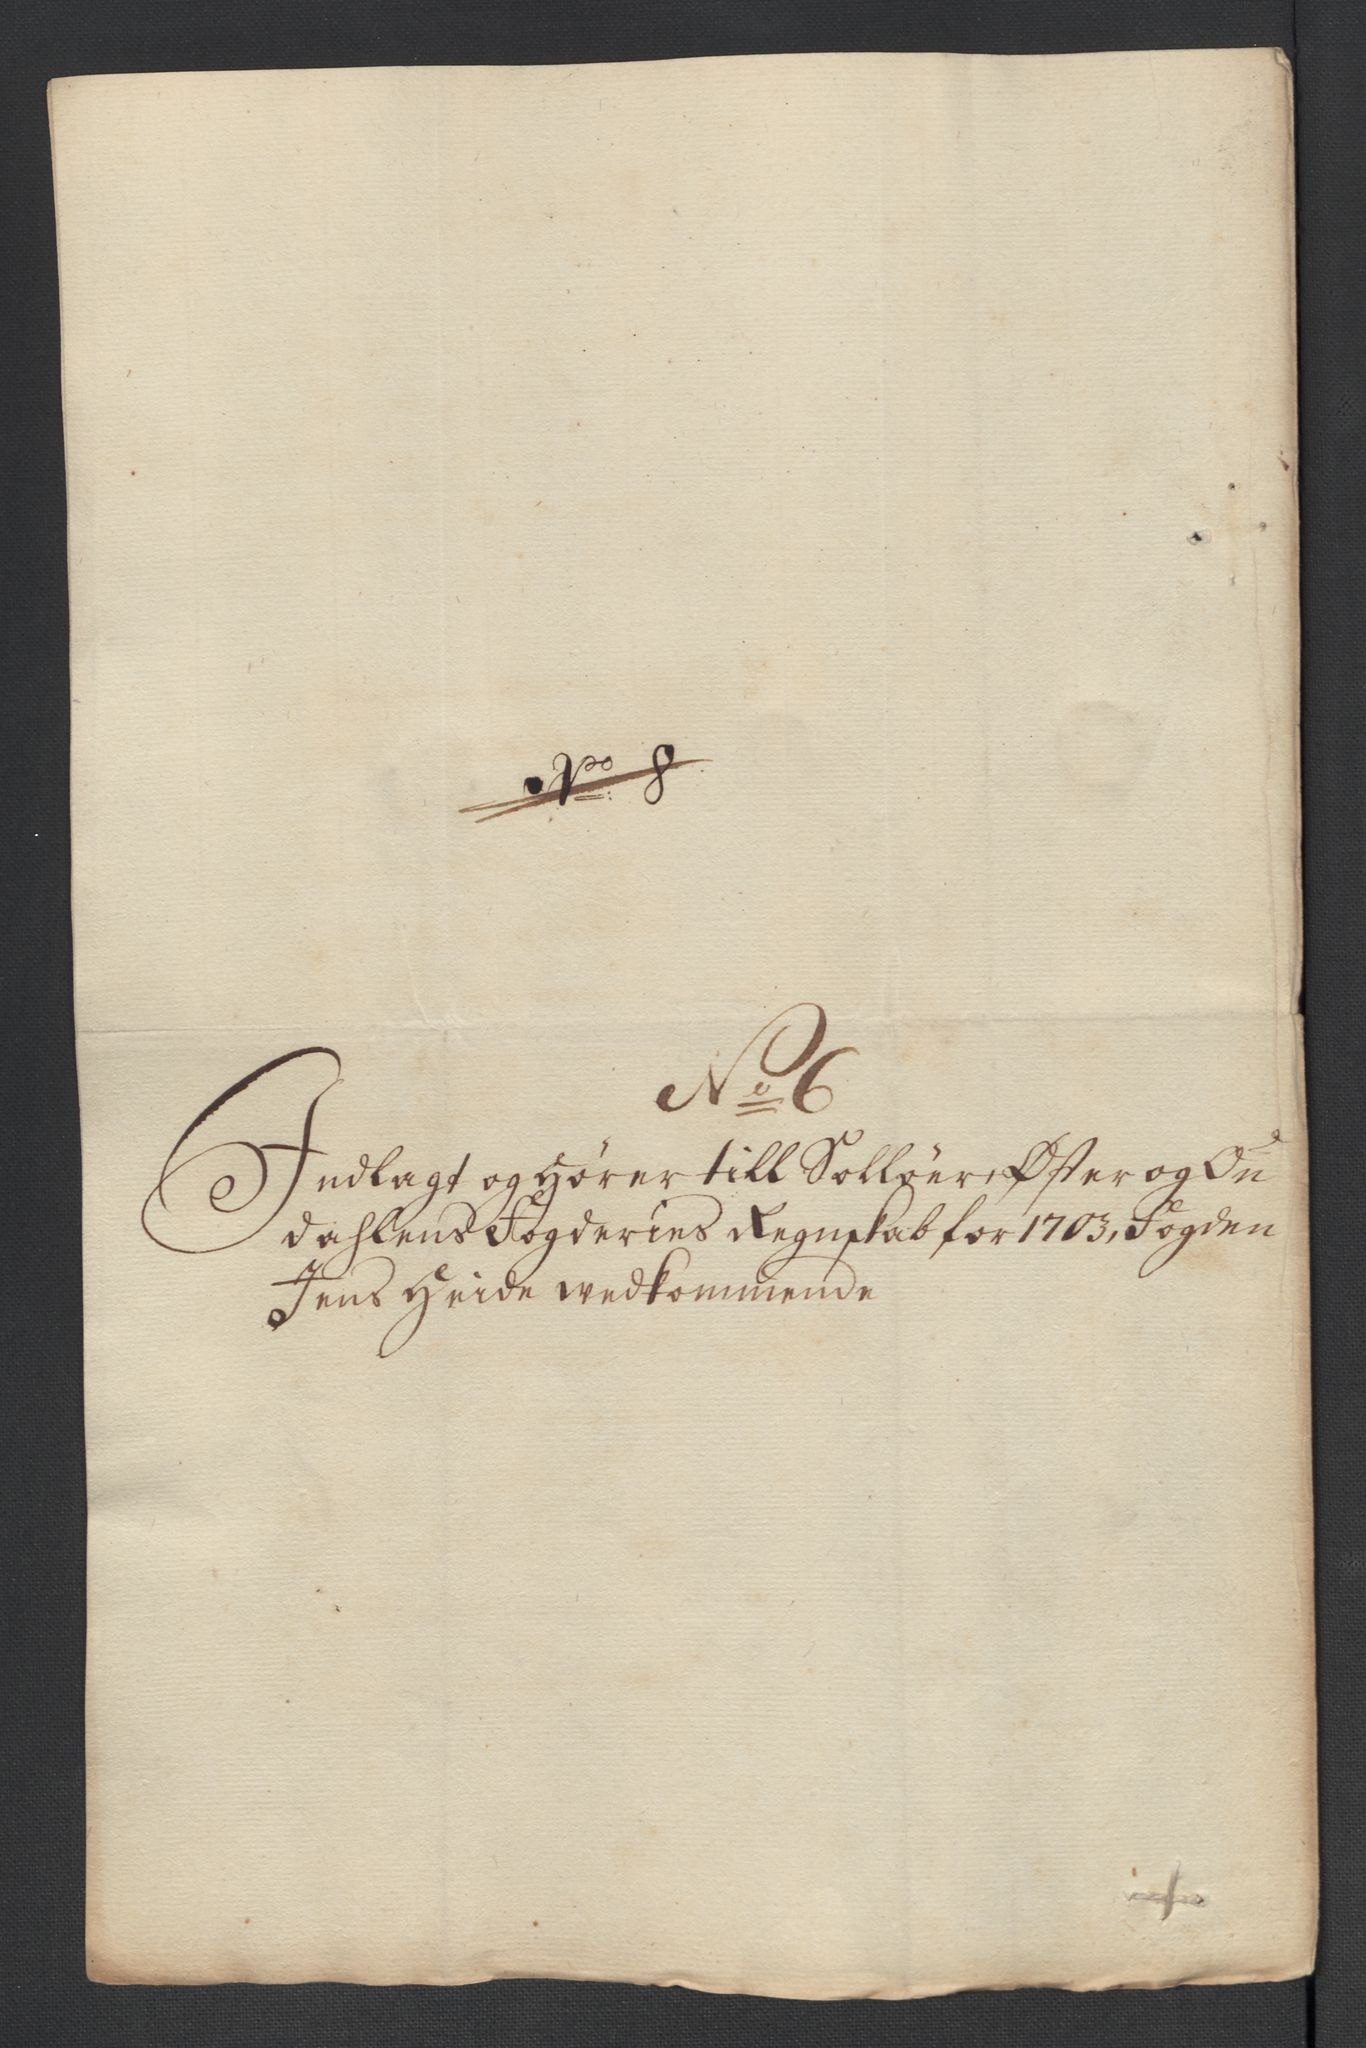 No 8
No 6
Indlagt og hører till Solløer, Øster og Ou
dahlens Fogderies Regnskab for 1703, Fogden
Jens Heide wedkommende